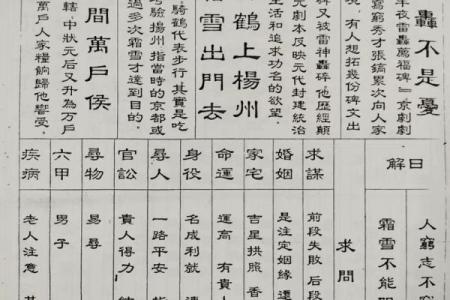 轟不是憂
半夜雷轟薦福碑』京劇劇
喜窮秀才張鎬累次向人家
，有人想拓幾份碑文出
碑又被雷神轟碎他歷經顛
元劇本反映元代封建統治
生活和追求功名的欲望。
鶴上揚州
雪出門去
騎鶴代表步行其實是吃
驗揚州指當時的京都或
過多次霜雪才達到目的。
間萬戶侯
轄中狀元后又升為万戶
萬戶人家糧餉歸他響受。
日解
人窮志不
霜雪不能
求問
求謀 前段失敗 后段
婚姻 是注定姻緣
家宅 吉星拱照 香
命運 運高 有貴
身役 名成利就
尋人 一路平安
官訟 貴人得力
尋物 易尋
六甲 男子
疾病 老人注意